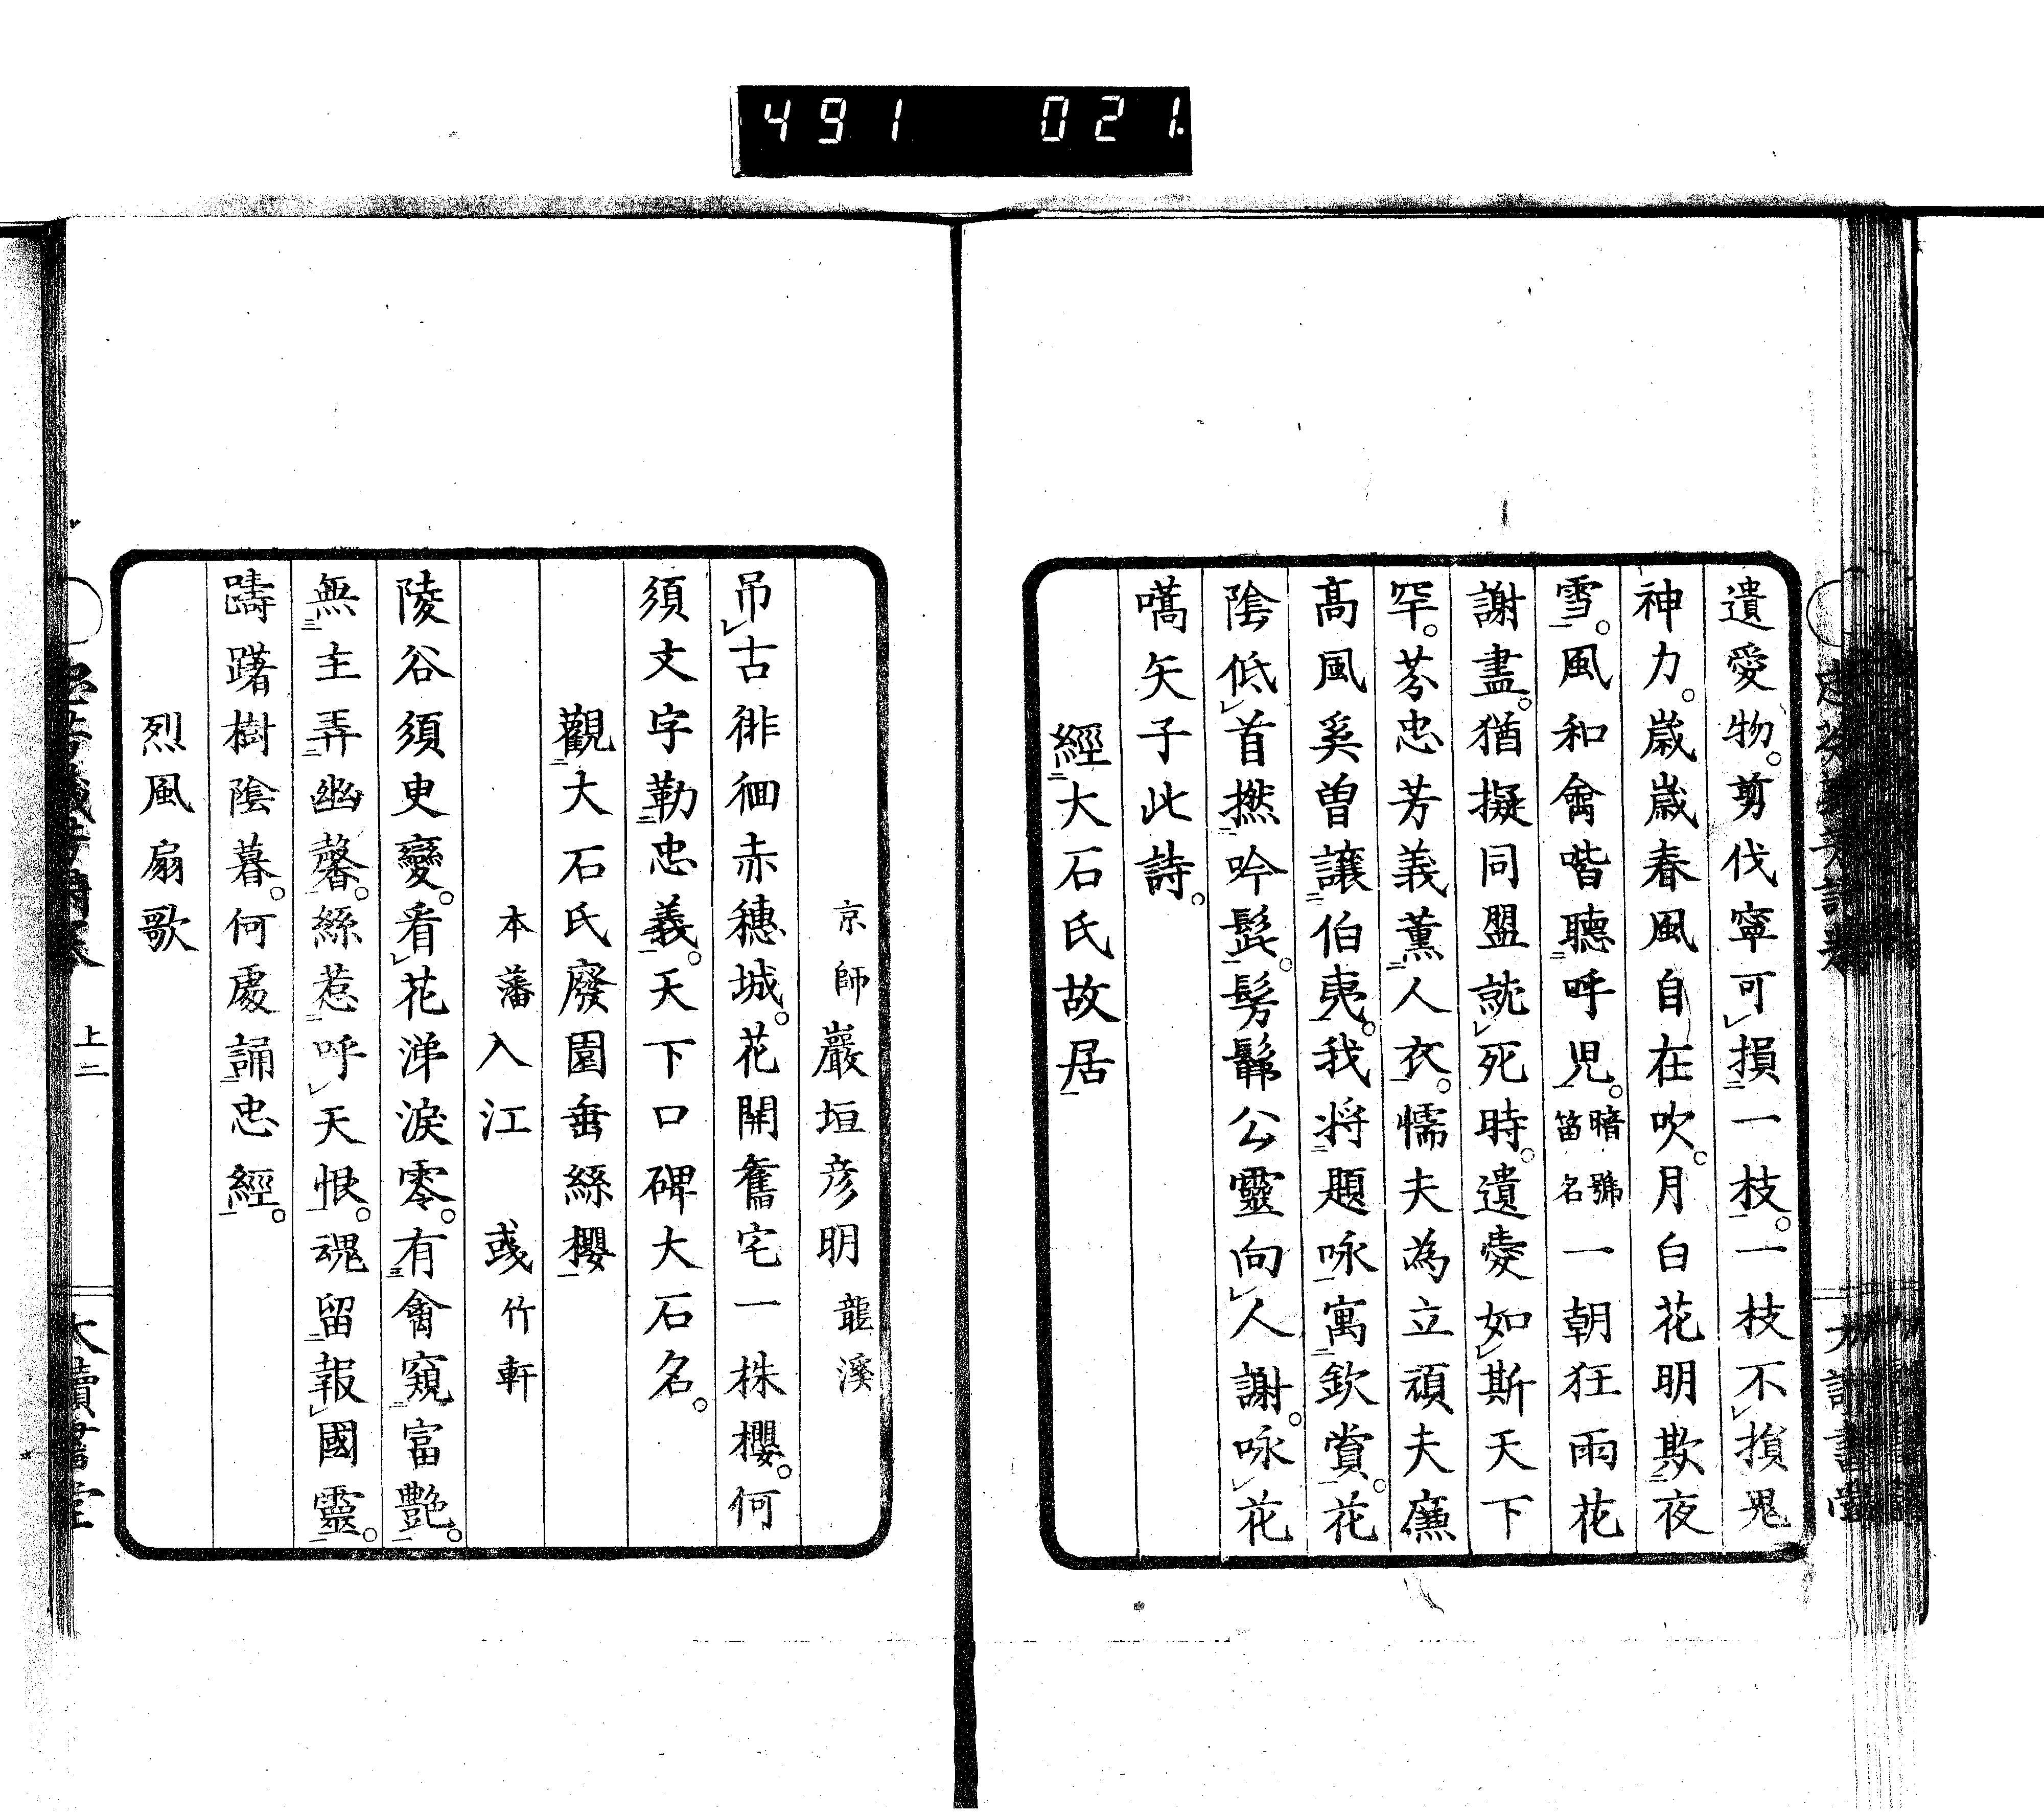 491 021.
遺愛物。剪伐寧可損一枝。一枝不損鬼
神力。歳歳春風自在吹。月白花明欺夜
雪。風和禽喈聽呼児。暗號笛名一朝狂雨花
謝盡。猶擬同盟就死時。遺愛如斯天下
罕。芬忠芳義薫人衣。懦夫為立頑夫廉
高風奚曽讓伯夷。我将題咏寓欽賞。花
陰低首撚吟髭。髣髴公靈向人謝。咏花
嚆矢子此詩。
經大石氏故居
京師巖垣彦明龍溪
吊古徘徊赤穗城。花開舊宅一株櫻。何
須文字勒忠義。天下口碑大石名。
觀大石氏廢園垂絲櫻
本藩入江彧竹軒
陵谷須臾變。看花涕淚零。有禽窺富艷。
無主弄幽馨。絲惹呼天恨。魂留報國靈。
躊躇樹陰暮。何處誦忠經。
烈風扇歌
上二